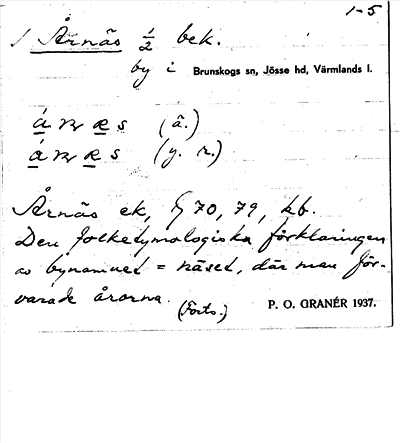 1-5
1 Årnäs 1/2 bek.
by i Brunskogs sn, Jösse hd, Värmlands l.
(ä.)
(y. r.)
Årnäs ek, § 70, 79, kb.
Den folketymologiska förklaringen
av bynamnet = näset, där man för-
varade årorna.
(Forts.) P. O. GRANÉR 1937.